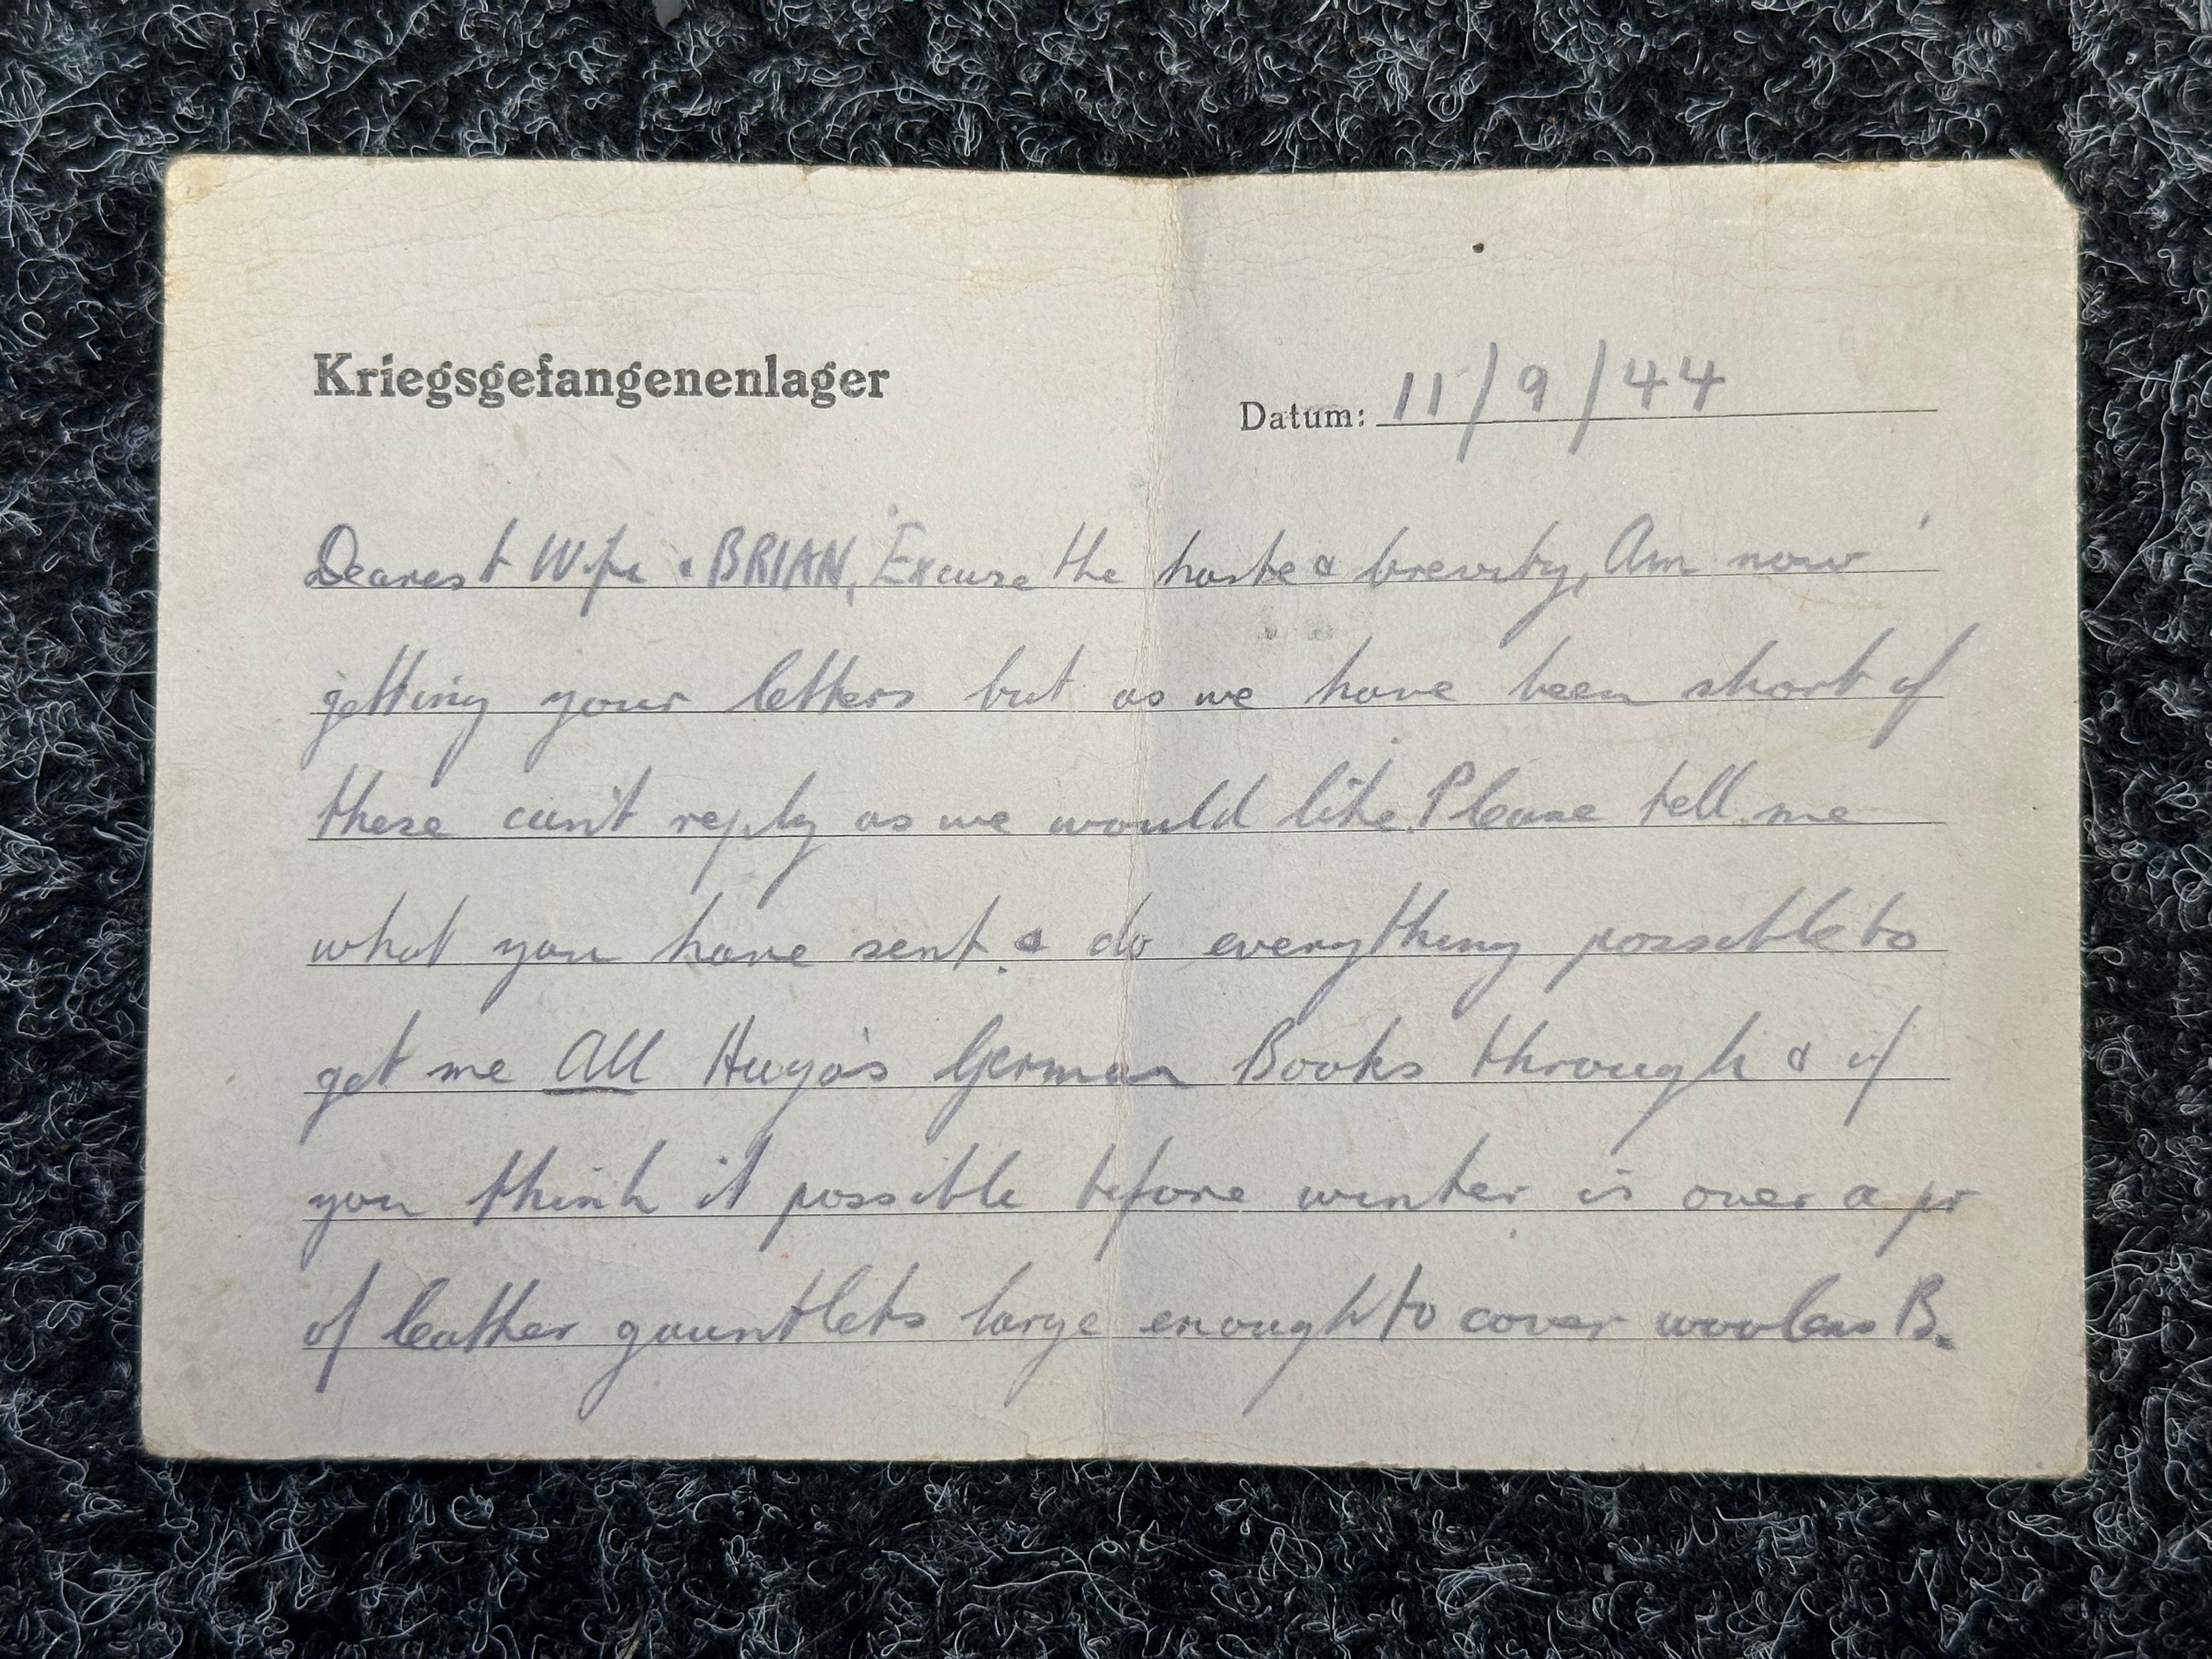 Kriegsgefangenenlager
Datum: 11/9/44
Dearest Wife & BRIAN, Excuse the haste & brevity, Am now
getting your letters but as we have been short of
these can't reply as we would like. Please tell me
what you have sent & do everything possible to
get me All Hugo's German Books through & if
you think it possible before winter is over a pr
of leather gauntlets large enough to cover woolens B.